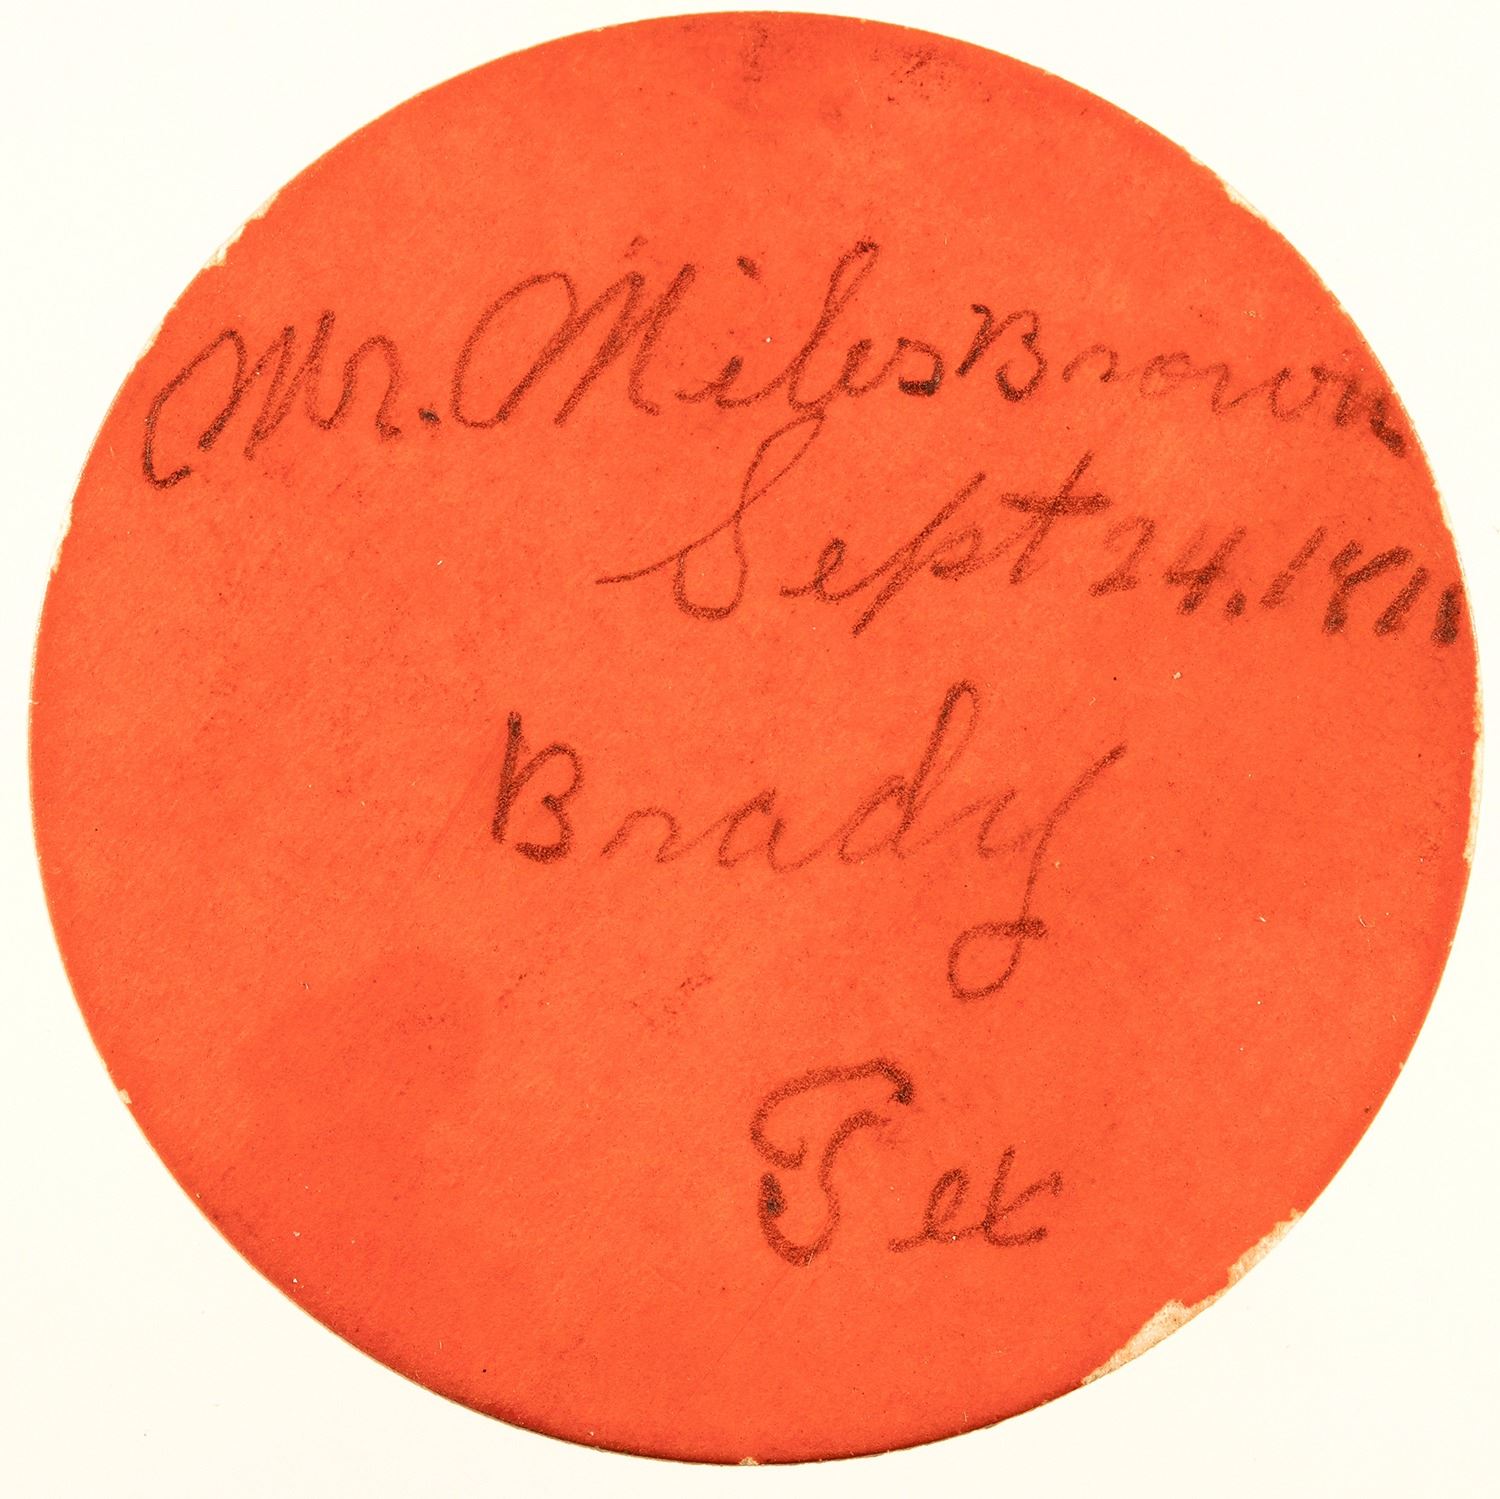 Mr. Miles Brown
Sept 24, 1911
Brady
Tex